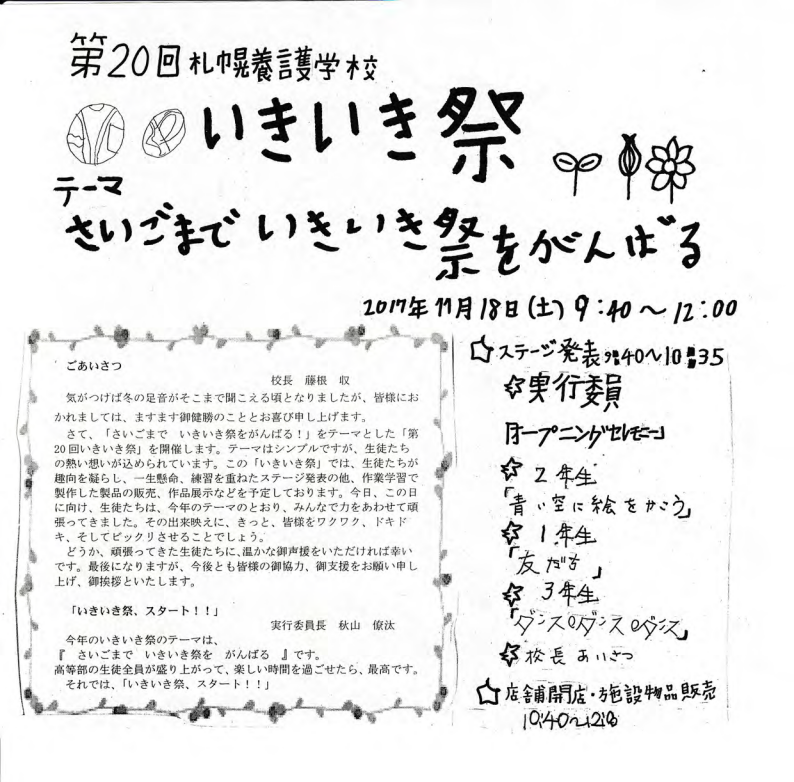 第20回札幌養護学校
いきいき祭
テーマ
さいごまでいきいき祭をがんばる
2017年11月18日(土)9:40～12:00
ごあいさつ
校長　藤根　収
気がつけば冬の足音がそこまで聞こえる頃となりましたが、皆様にお
かれましては、ますます御健勝のこととお喜び申し上げます。
さて、「さいごまで　いきいき祭をがんばる！」をテーマとした「第
20回いきいき祭」を開催します。テーマはシンプルですが、生徒たち
の熱い想いが込められています。この「いきいき祭」では、生徒たちが
趣向を凝らし、一生懸命、練習を重ねたステージ発表の他、作業学習で
製作した製品の販売、作品展示などを予定しております。今日、この日
に向け、生徒たちは、今年のテーマのとおり、みんなで力をあわせて頑
張ってきました。その出来映えに、きっと、皆様をワクワク、ドキド
キ、そしてビックリさせることでしょう。
どうか、頑張ってきた生徒たちに、温かな御声援をいただければ幸い
です。最後になりますが、今後とも皆様の御協力、御支援をお願い申し
上げ、御挨拶といたします。
「いきいき祭、スタート！！」
実行委員長　秋山　僚汰
今年のいきいき祭のテーマは、
『　さいごまで　いきいき祭を　がんばる　』です。
高等部の生徒全員が盛り上がって、楽しい時間を過ごせたら、最高です。
それでは、「いきいき祭、スタート！！」
☆ステージ発表 9:40～10:35
☆実行委員
「オープニングセレモニー」
☆2年生
「青い空に絵をかこう」
☆1年生
「友だち」
☆3年生
「ダンス@ダンス@ダンス」
☆校長あいさつ
☆店舗開店・施設物品販売
10:40～12:00